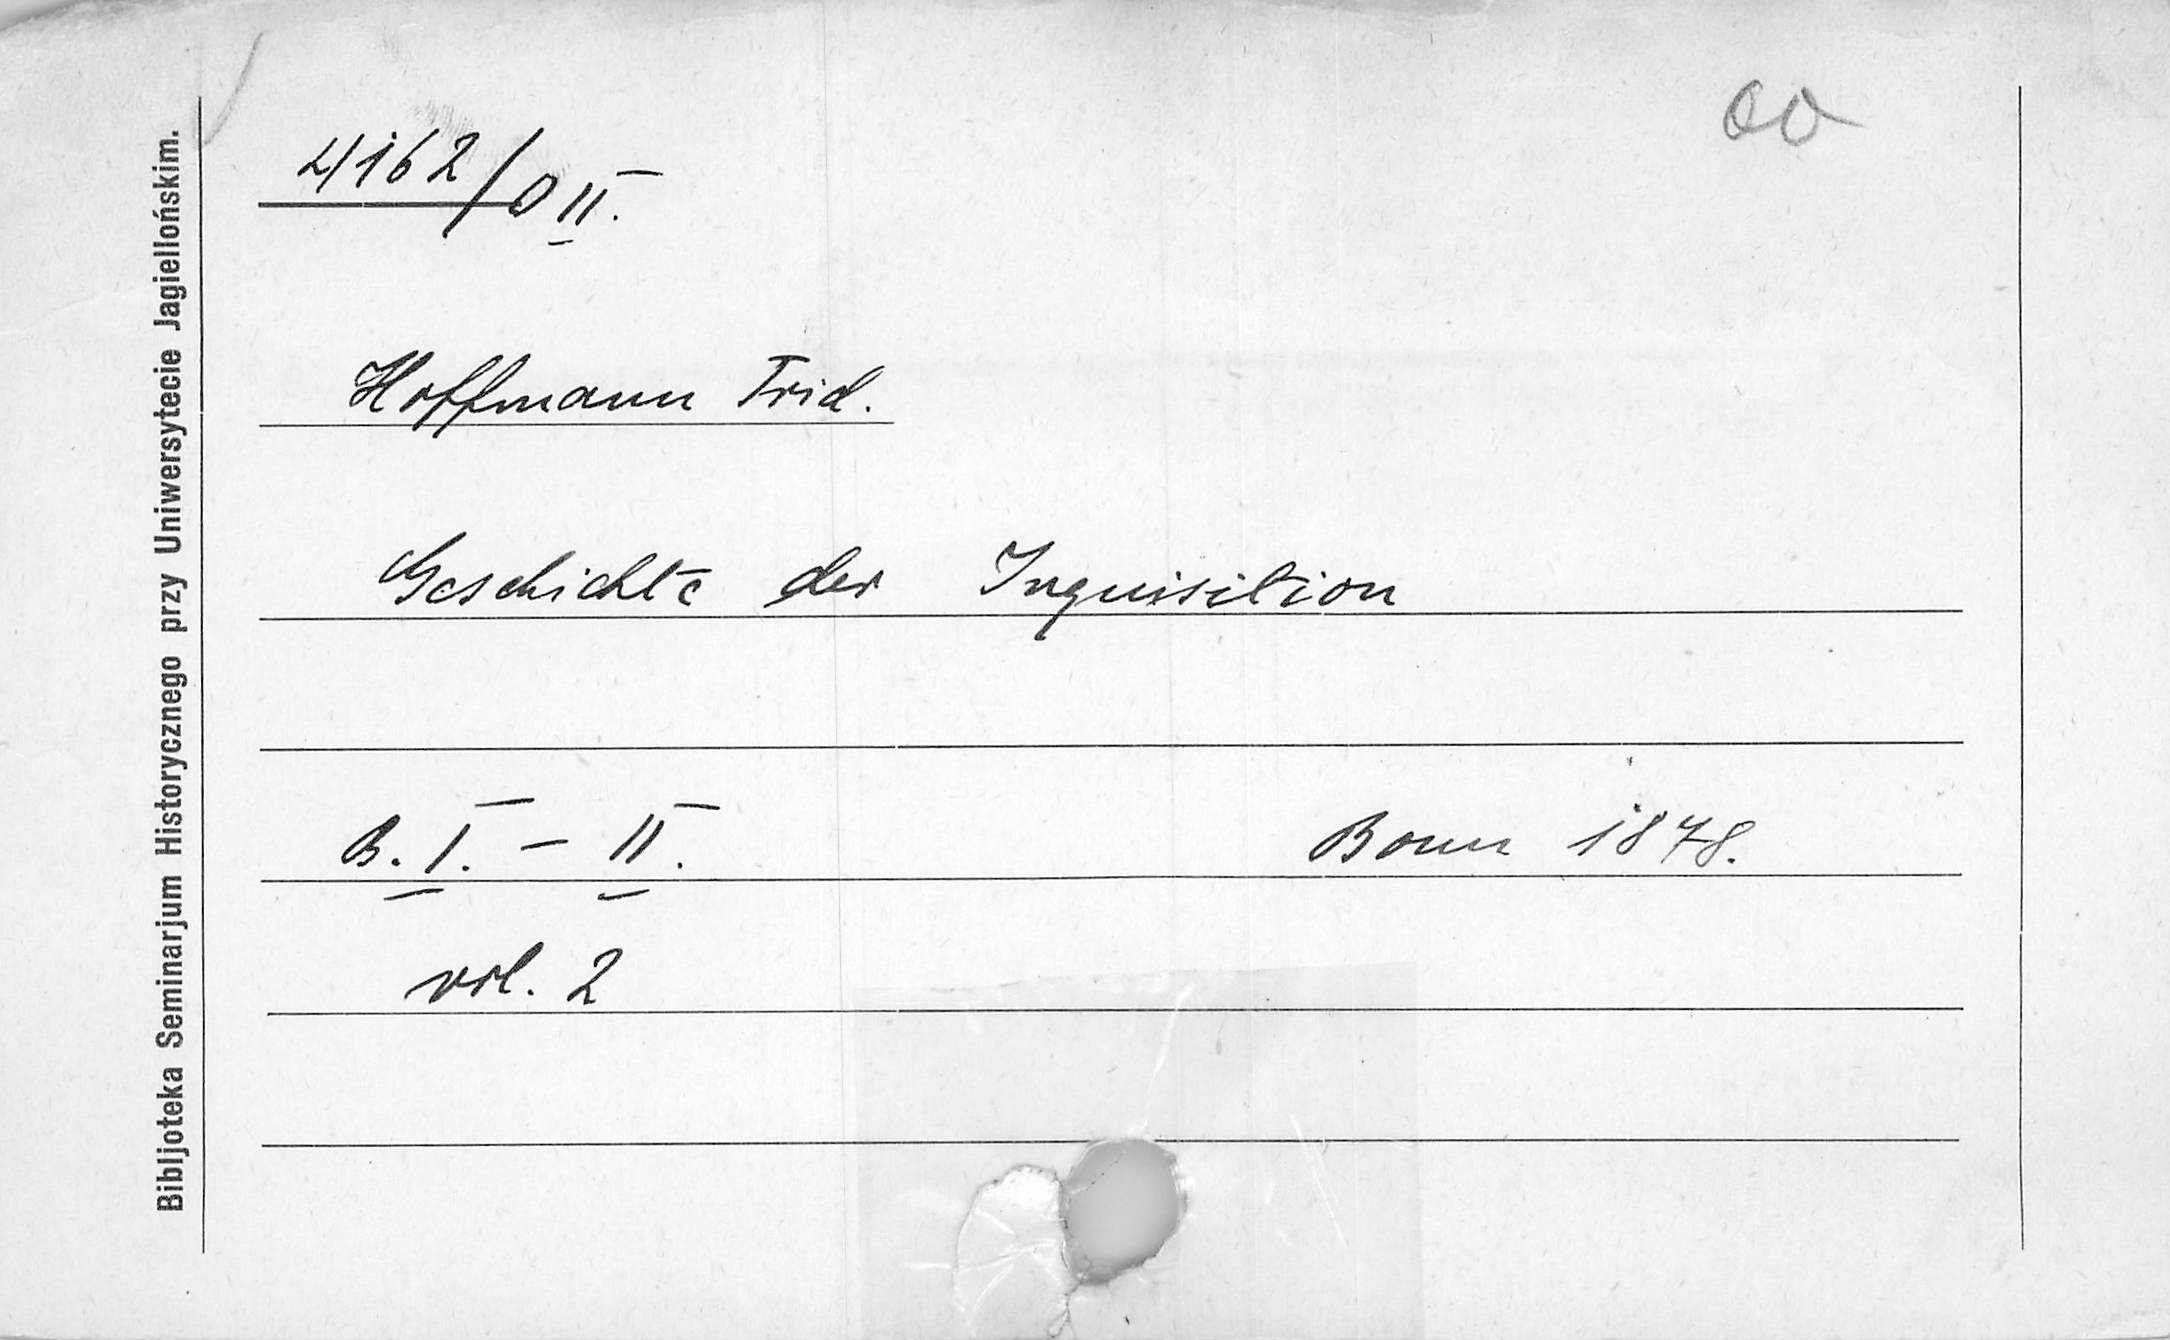 4162/0 II.
Hoffmann Frid.
Geschichte der Inquisition
B. I. – II. Bonn 1878.
vol. 2
Bibljoteka Seminarjum Historycznego przy Uniwersytecie Jagiellońskim.